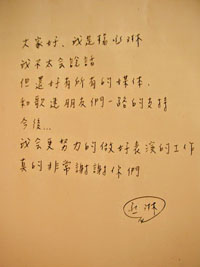 大家好、我是楊丞琳
我不太会說話
但還好有所有的媒体、
和歌迷朋友們一路的支持
今後…
我会更努力的做好表演的工作
真的非常謝謝你們
丞琳